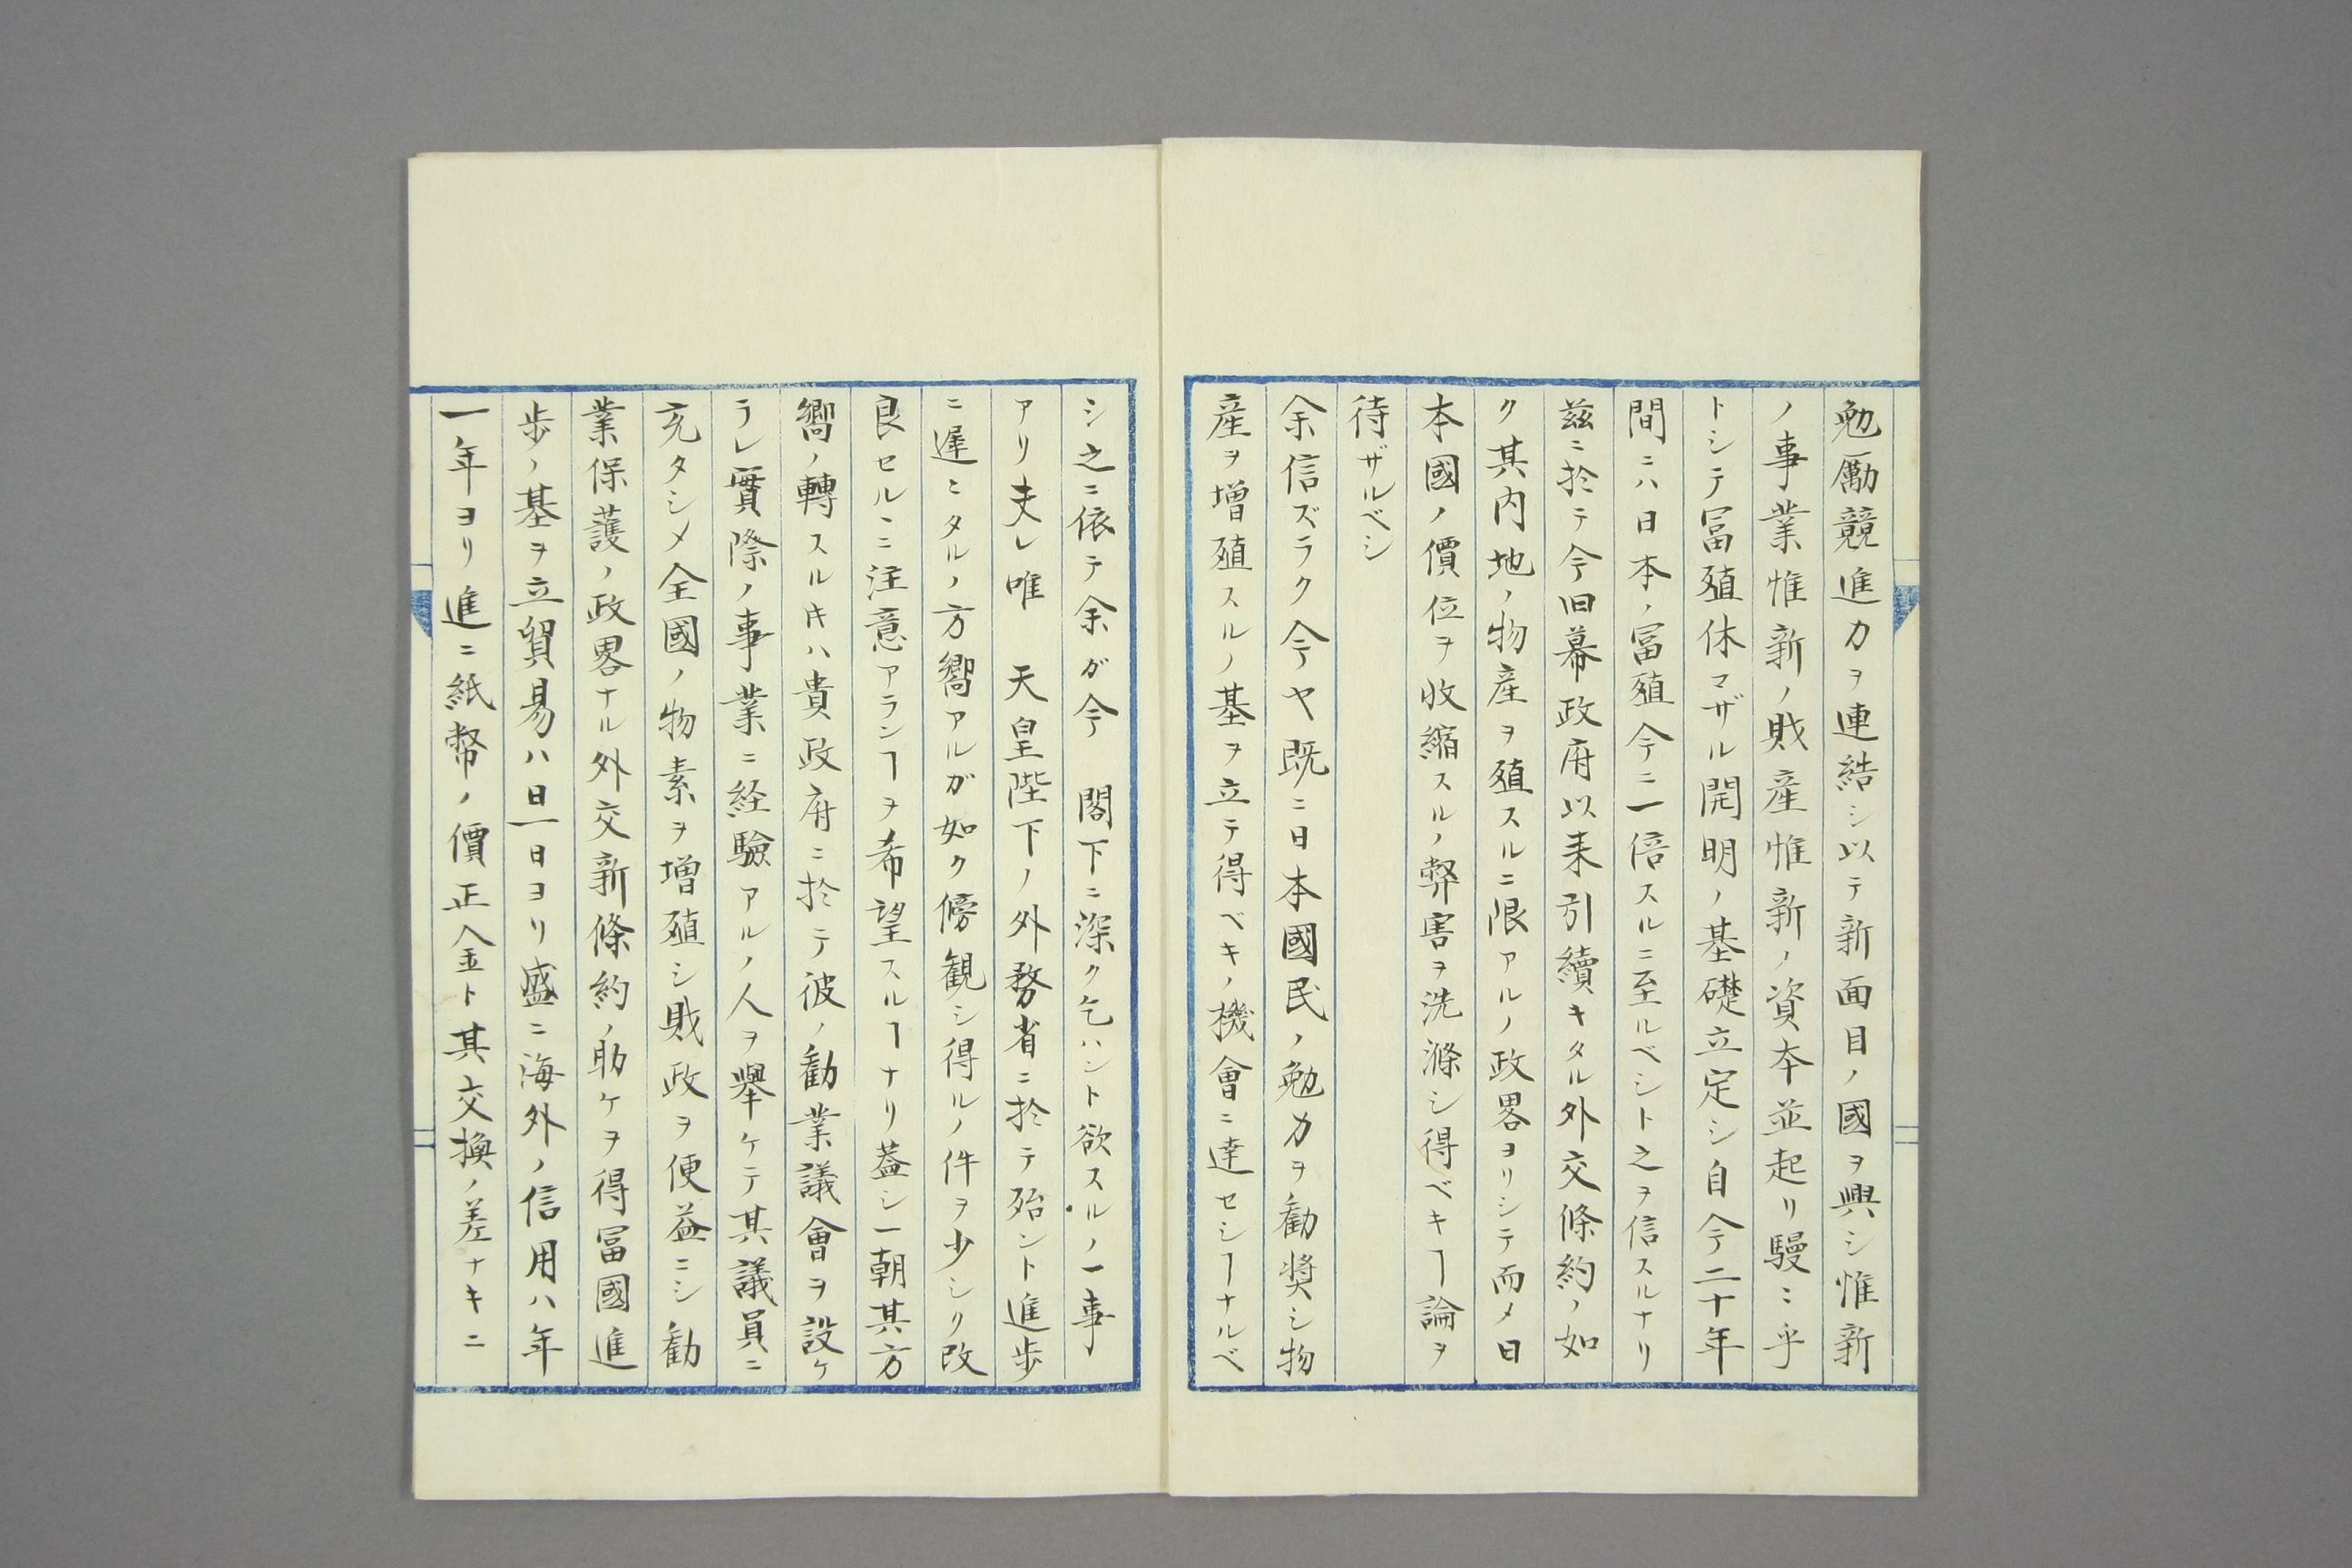 勉勵競進力ヲ連結シ以テ新面目ノ國ヲ興シ惟新
ノ事業惟新ノ財産惟新ノ資本並起リ騣ニ乎
トシテ冨殖休マザル開明ノ基礎立定シ自今二十年
間ニハ日本ノ冨殖今ニ一倍スルニ至ルベシト之ヲ信スルナリ
茲ニ於テ今旧幕政府以来引續キタル外交條約ノ如
ク其内地ノ物産ヲ殖スルニ限アルノ政畧ヨリシテ而メ日
本國ノ價位ヲ收縮スルノ弊害ヲ洗滌シ得ベキヿ論ヲ
待ザルベシ
余信ズラク今ヤ既ニ日本國民ノ勉力ヲ勸奨シ物
産ヲ增殖スルノ基ヲ立テ得ベキノ機會ニ達セシヿナルベ
シ之ニ依テ余ガ今 閣下ニ深ク乞ハント欲スルノ一事
アリ夫レ唯 天皇陛下ノ外務省ニ於テ殆ント進歩
ニ遲ニタルノ方嚮アルガ如ク傍観シ得ルノ件ヲ少シク改
良セルニ注意アランヿヲ希望スルヿナリ蓋シ一朝其方
嚮ノ轉スル片ハ貴政府ニ於テ彼ノ勸業議會ヲ設ケ
ラレ實際ノ事業ニ経驗アルノ人ヲ舉ケテ其議員ニ
充タシメ全國ノ物素ヲ增殖シ財政ヲ便益ニシ勸
業保護ノ政畧ナル外交新條約ノ助ケヲ得冨國進
歩ノ基ヲ立貿易ハ日一日ヨリ盛ニ海外ノ信用ハ年
一年ヨリ進ニ紙幣ノ價正金ト其交換ノ差ナキニ